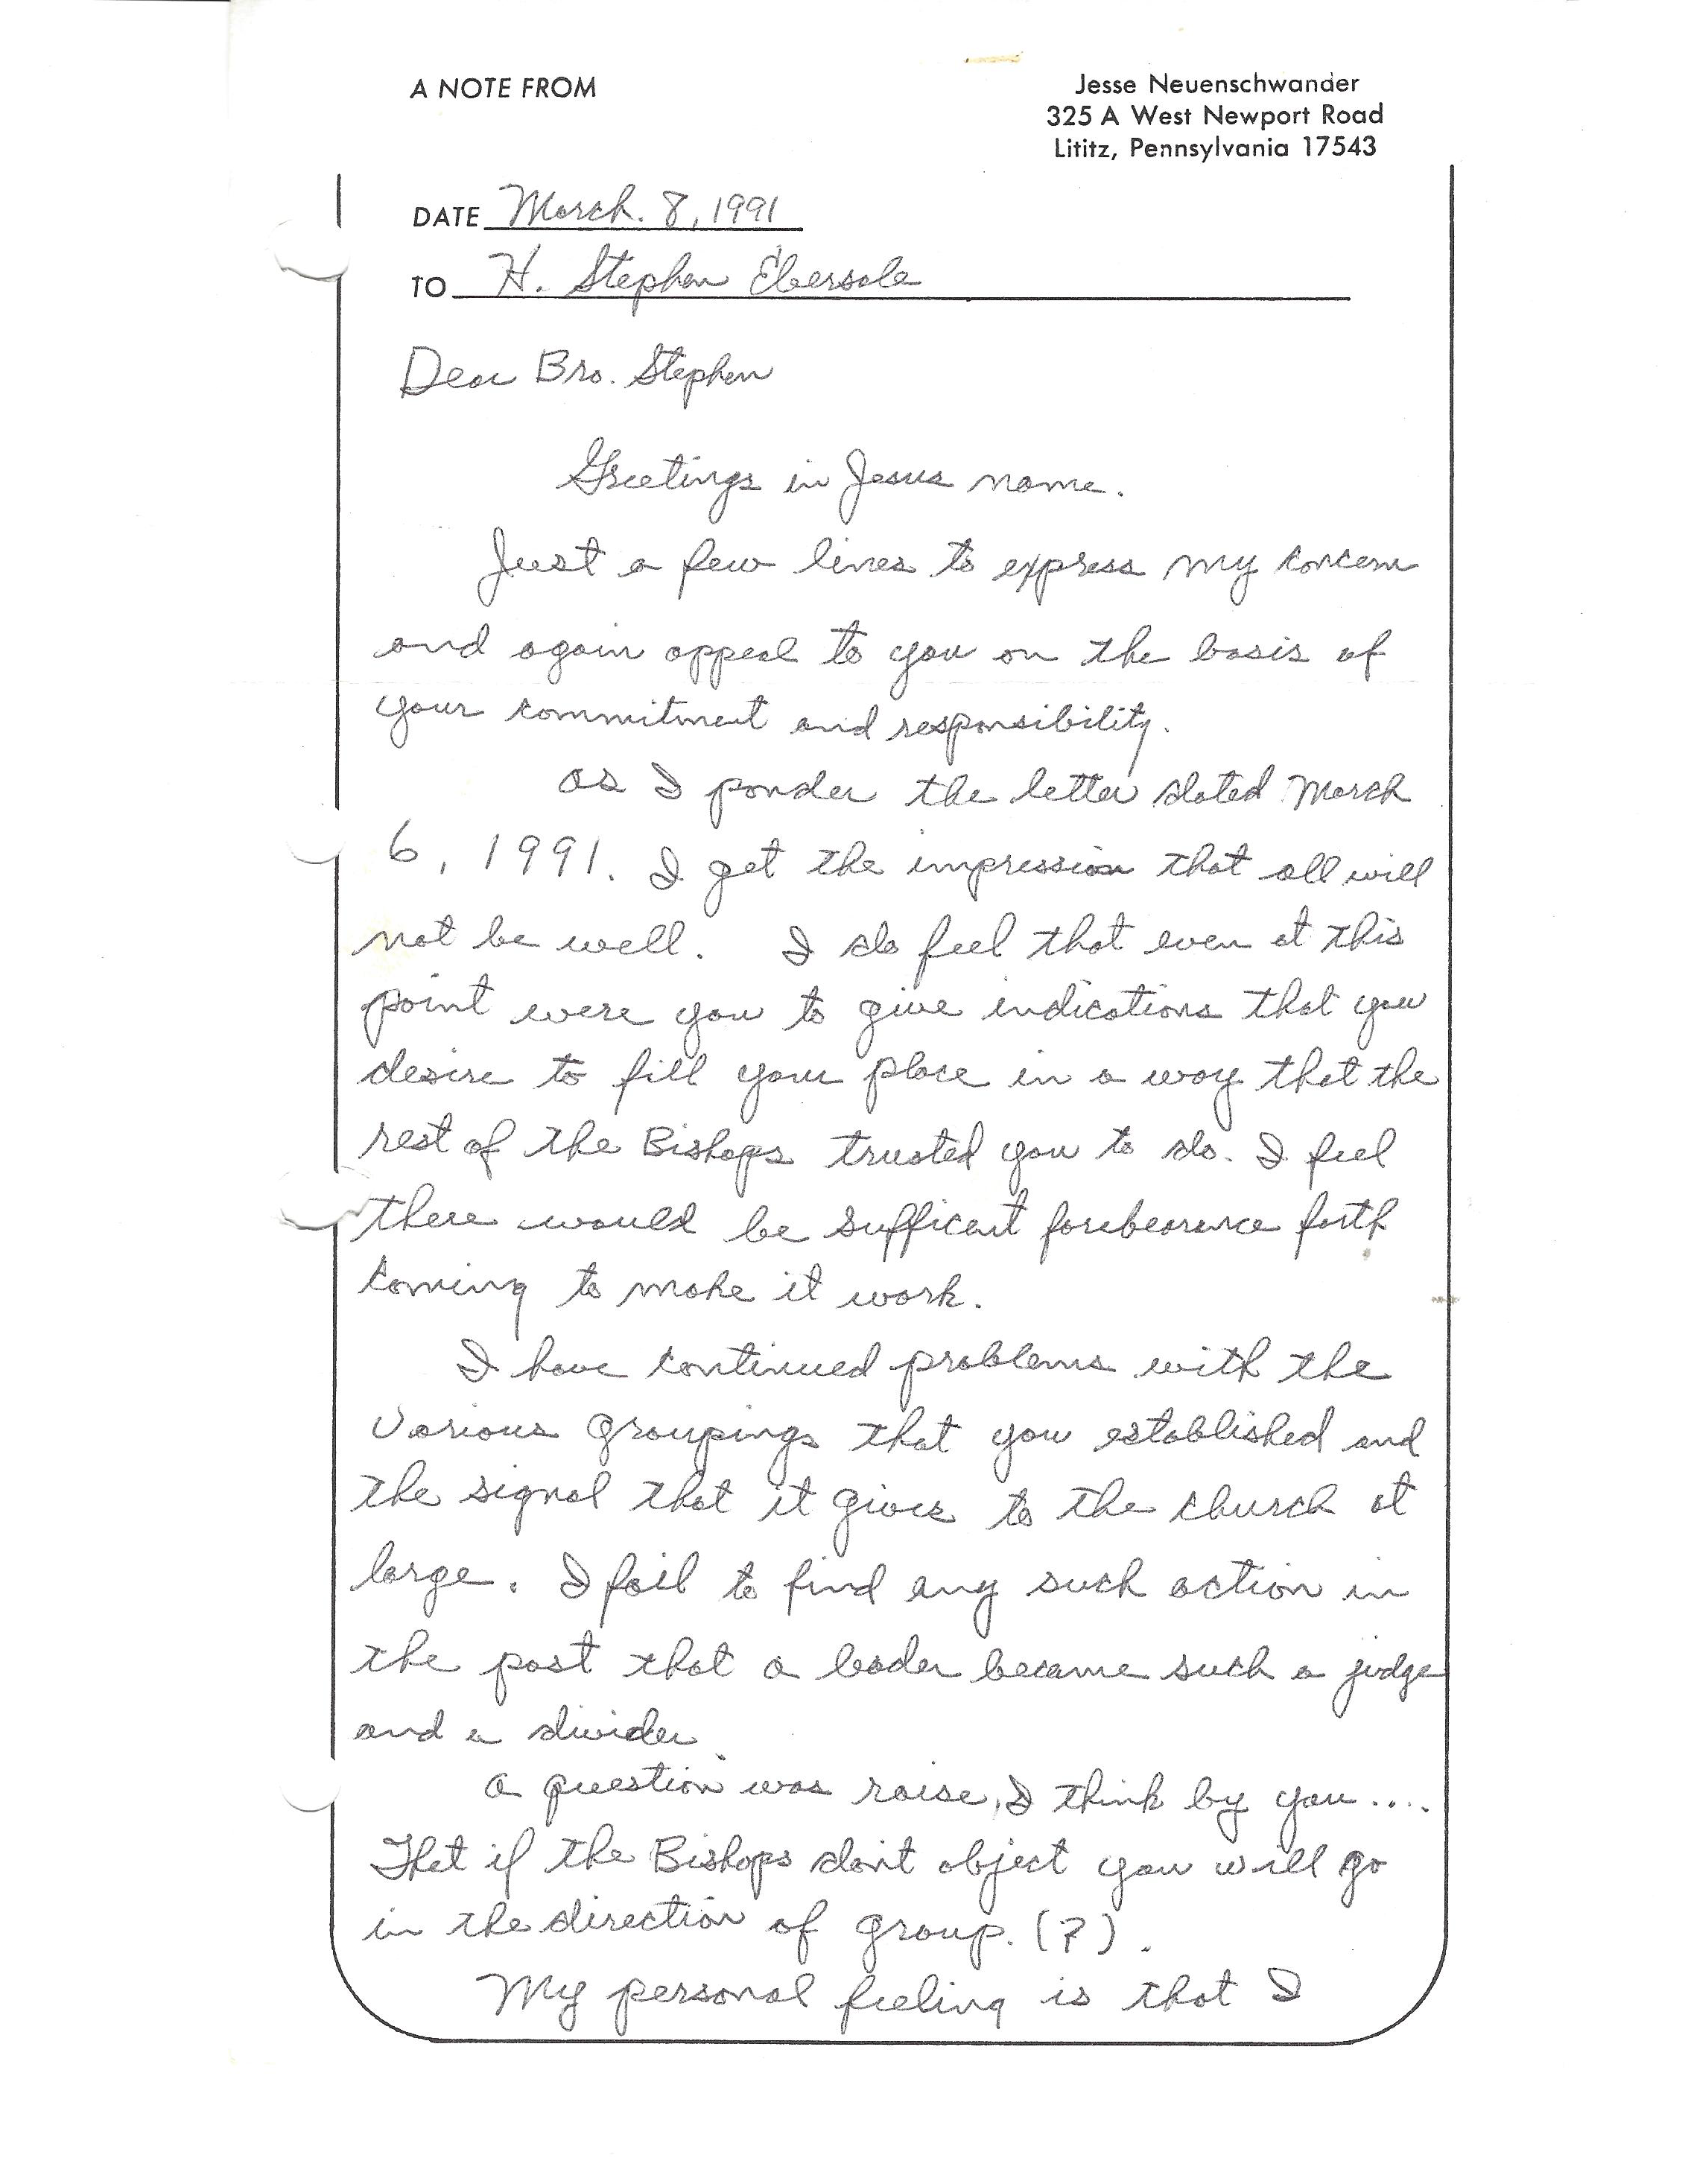 A NOTE FROM
Jesse Neuenschwander
325 A West Newport Road
Lititz, Pennsylvania 17543
DATE March. 8, 1991
TO H. Stephen Ebersole
Dear Bro. Stephen
Greetings in Jesus name.
Just a few lines to express my concern
and again appeal to you on the basis of
your commitment and responsibility.
As I ponder the letter dated March
6, 1991. I get the impression that all will
not be well. I do feel that even at this
point were you to give indications that you
desire to fill your place in a way that the
rest of the Bishops trusted you to do. I feel
there would be sufficent forebearence forth
coming to make it work.
I have continued problems with the
various groupings that you established and
the signal that it gives to the church at
large. I fail to find any such action in
the past that a leader became such a judge
and a divider.
A question was raise, I think by you....
That if the Bishops don't object you will go
in the direction of group. (?).
My personal feeling is that I